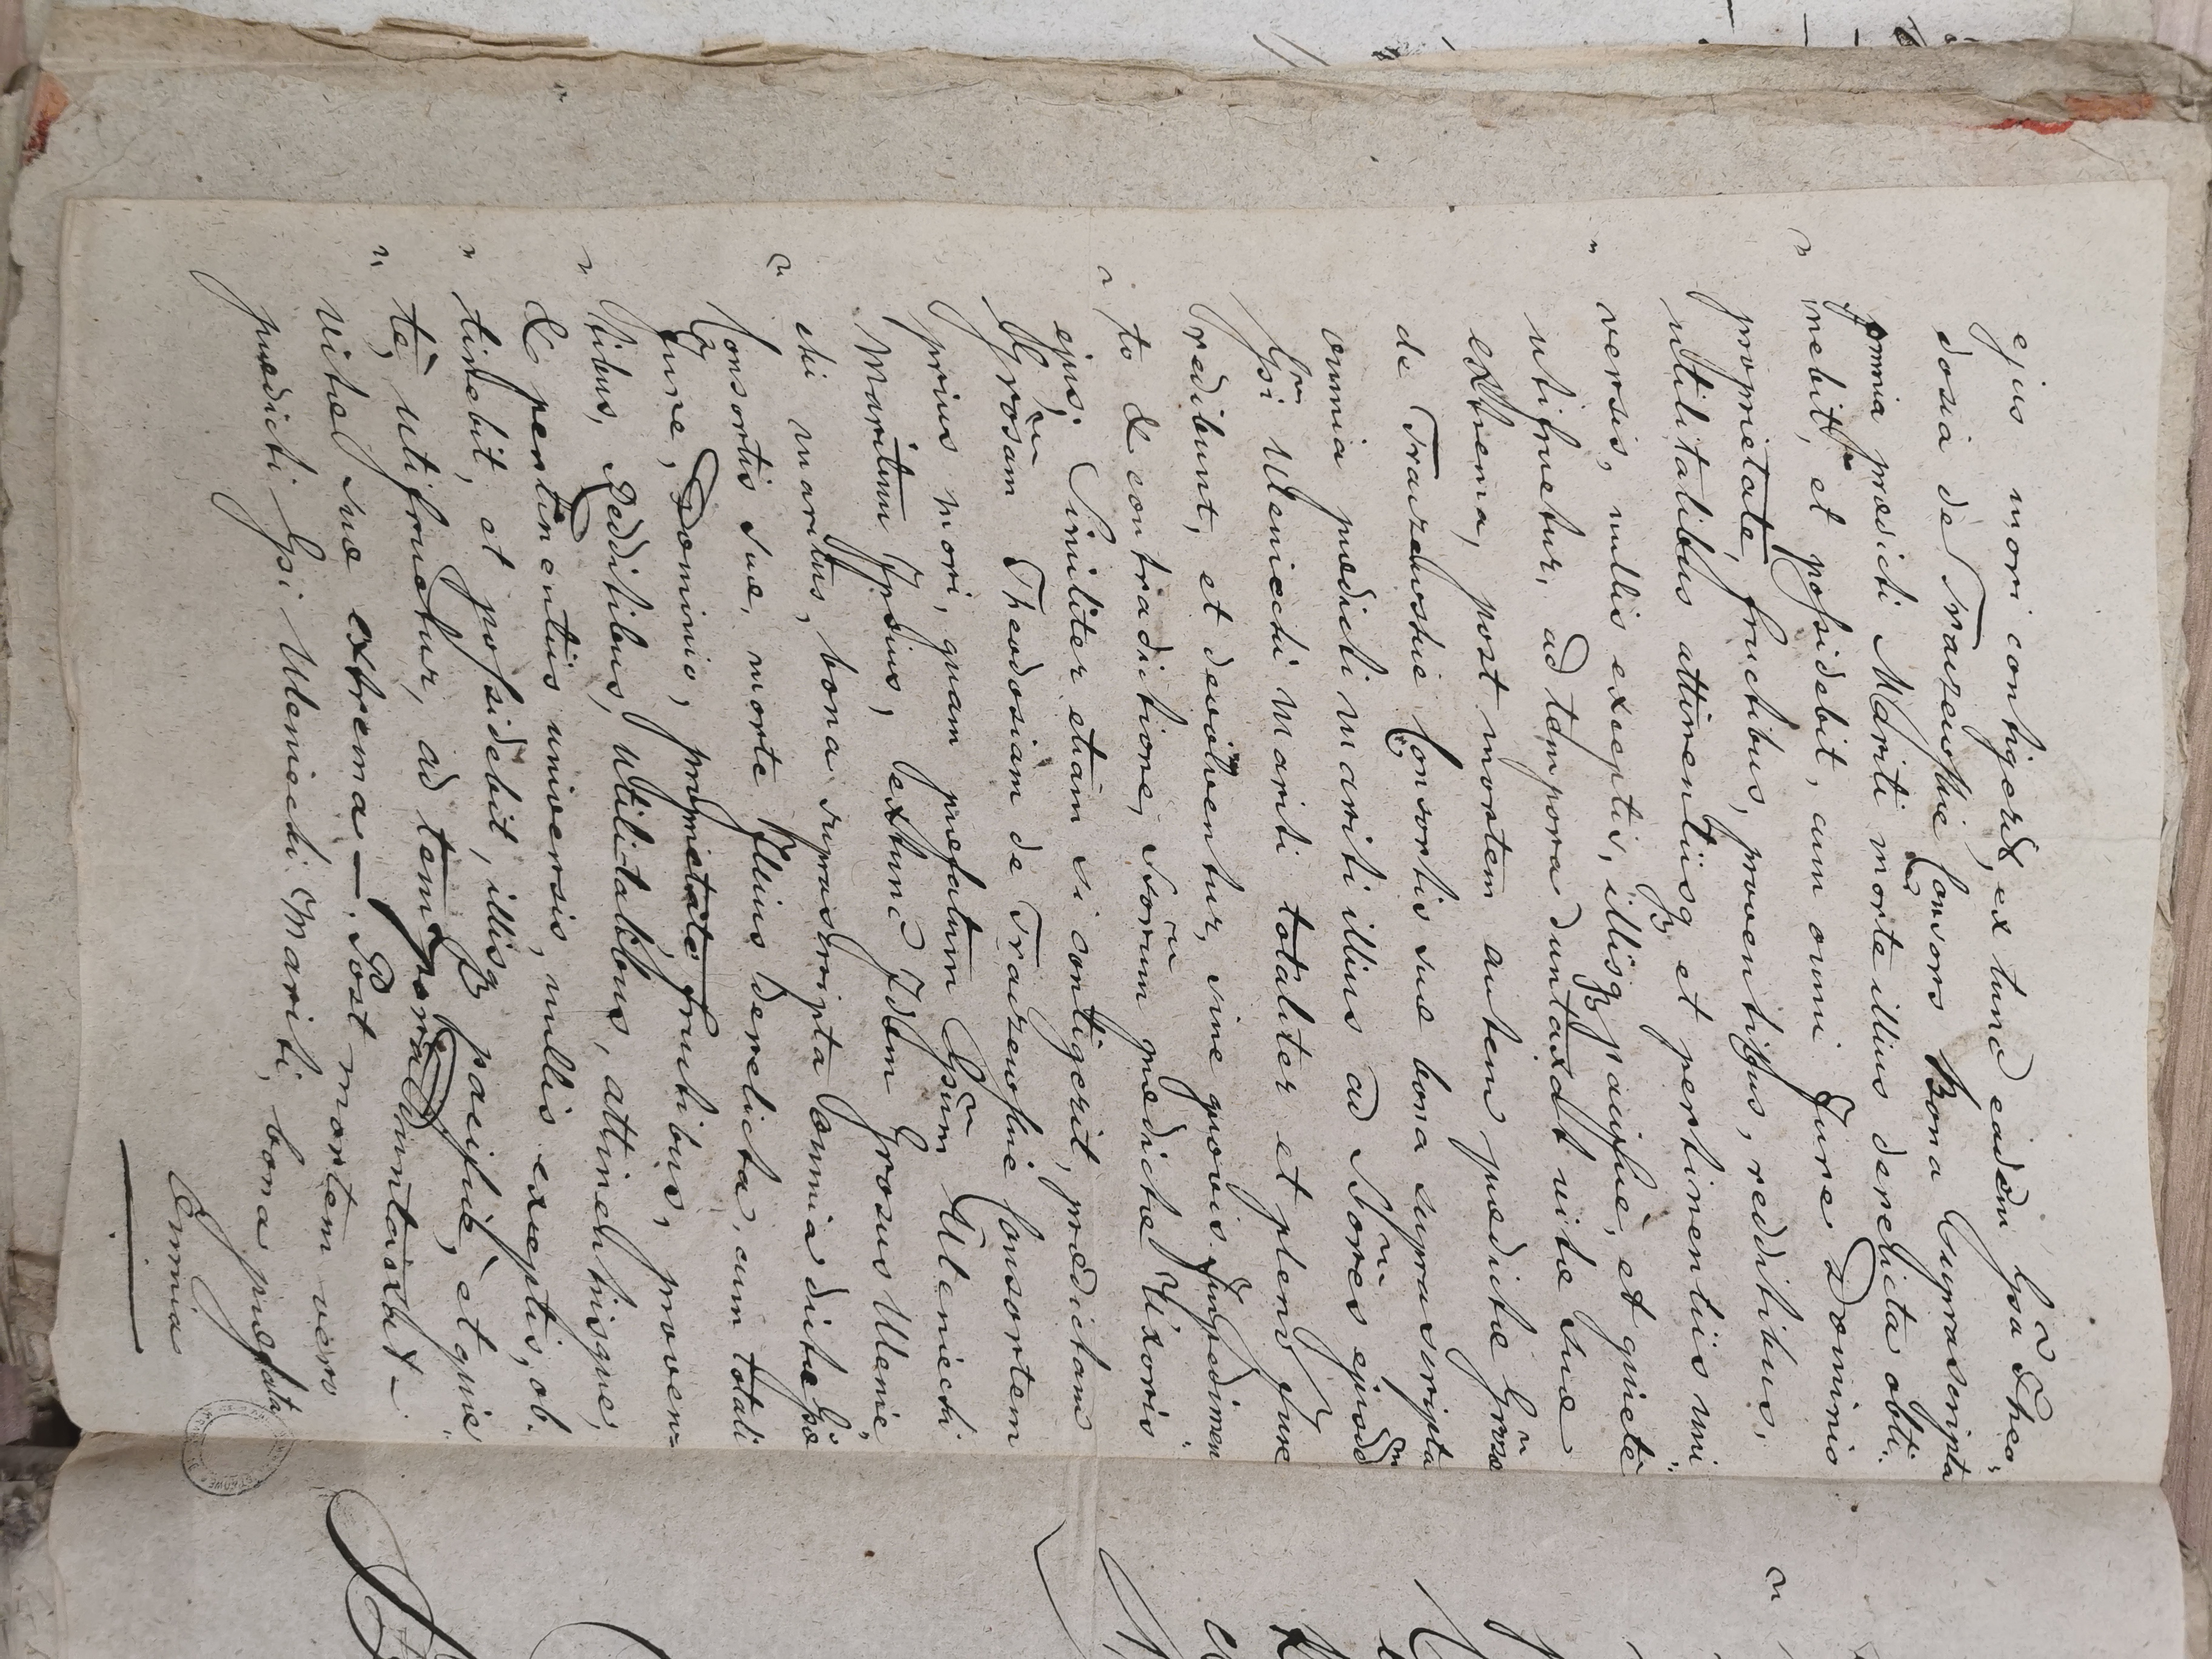 ejus mori contigerit, ex tunc eadem Gsa Theo„
dosia de Trauzenoskie Consors Bona Suprascripta
omnia prædicti Mariti morte illius derelicta obti„
„nebit, et possidebit, cum omni Jure Dominio
proprietate, fructibus, proventibus, redditibus,
utilitatibus attinentiisq et pertinentiis uni„
„versis, nullis exceptis, illisq pacifice, et quiete
utifruetur, ad tempora duntaxat vitæ suæ
extrema, post mortem autem prædictæ Grosæ
de Trauzenoskie Consortis suæ bona suprascripta
omnia prædicti mariti illius ad Sores ejusdem
Gsi Uleniecki Mariti totaliter et pleno jure
redibunt, et devolventur, sine quovis impedimen„
„to & contradictione, Sorum prædictæ Uxoris
ejus; Similiter etiam si contigerit, prædictam
Grosam Theodosiam de Trauzenoskie Consortem
prius mori, quam præfatum Gsum Uleniecki
Maritum Ipsius, extunc Idem Grosus Ulenie„
„cki maritus, bona suprascripta omnia dictæ Gsæ
Consortis suæ, morte illius derelicta, cum totali
Jure, Dominio, proprietate fructibus, proven=
„tibus, Redditibus, utilitatibus, attinentiisque,
& pertinentiis universis, nullis exceptis, ob„
„tinebit, et possidebit, illisq pacifice, et quie„
„te, utifruetur, ad tempora duntaxat –
vitæ suæ extrema — Post mortem vero
prædicti Gsi Uleniecki Mariti, bona præfata
Omnia